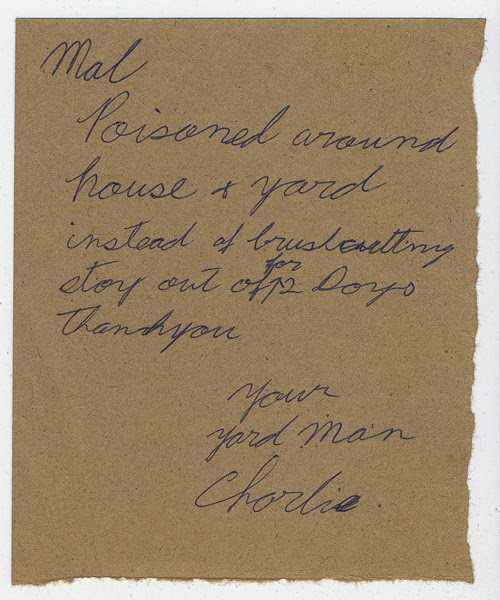 Mal
Poisoned around
house & yard
instead of brushcutting
stay out of for 2 Days
thankyou
Your
yard man
Charlie